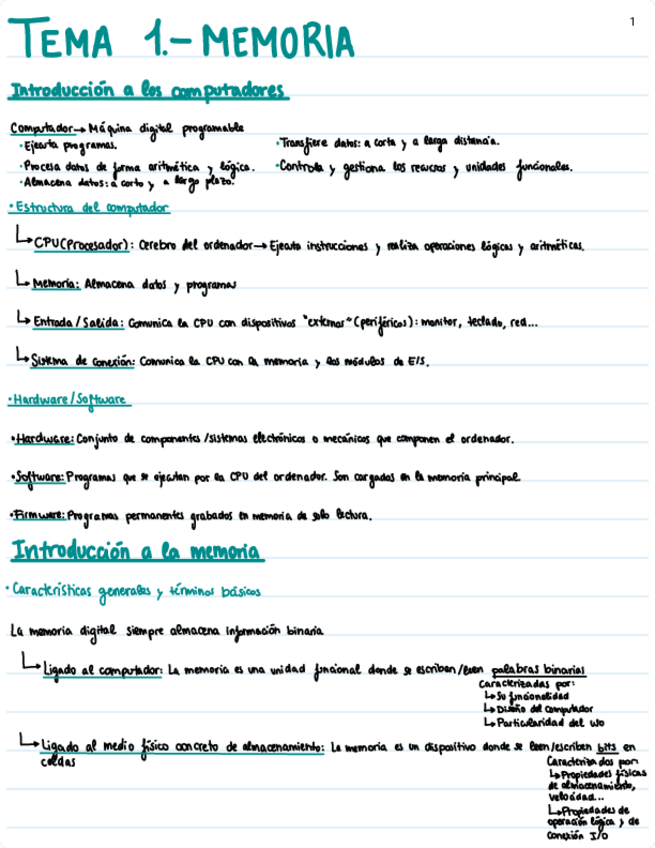 1
TEMA 1.- MEMORIA
Introducción a los computadores
Computador→ Máquina digital programable
·Ejecuta programas.
·Transfiere datos: a corta y a larga distancia.
·Procesa datos de forma aritmética y lógica.
·Controla y gestiona los recursos y unidades funcionales.
·Almacena datos: a corto y a largo plazo.
·Estructura del computador
↳CPU(Procesador): Cerebro del ordenador→ Ejecuta instrucciones y realiza operaciones lógicas y aritméticas.
↳Memoria: Almacena datos y programas
↳Entrada/Salida: Comunica la CPU con dispositivos "externos" (periféricos): monitor, teclado, red...
↳Sistema de Conexión: Comunica la CPU con la memoria y los módulos de E/S.
·Hardware/Software
·Hardware: Conjunto de componentes/sistemas electrónicos o mecánicos que componen el ordenador.
·Software: Programas que se ejecutan por la CPU del ordenador. Son cargados en la memoria principal.
·Firmware: Programas permanentes grabados en memoria de solo lectura.
Introducción a la memoria
·Características generales y términos básicos
La memoria digital siempre almacena información binaria
↳Ligado al computador: La memoria es una unidad funcional donde se escriben/leen palabras binarias
Caracterizadas por:
↳Su funcionalidad
↳Diseño del computador
↳Particularidad del uso
↳Ligado al medio físico concreto de almacenamiento: La memoria es un dispositivo donde se leen/escriben bits en
celdas
Caracterizados por:
↳Propiedades físicas
de almacenamiento,
velocidad...
↳Propiedades de
operación lógica y de
conexión I/O